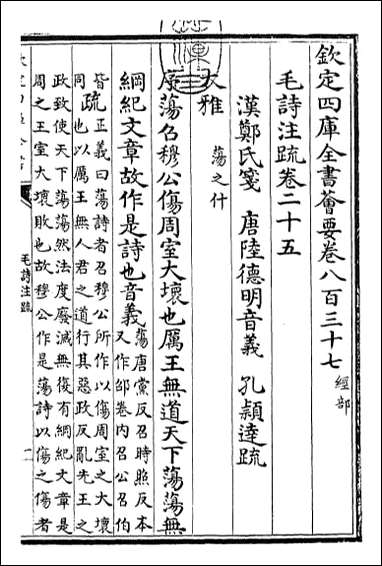 欽定四庫全書薈要卷八百三十七 經部
毛詩注疏卷二十五
漢鄭氏箋 唐陸德明音義 孔穎達疏
大雅 蕩之什
序蕩召穆公傷周室大壞也厲王無道天下蕩蕩無
綱紀文章故作是詩也音義 蕩唐黨反召時照反本
又作邵卷内召公召伯
皆同 疏 正義曰蕩詩者召穆公所作以傷周室之大壞
也以厲王無人君之道行其惡政反亂先王之
政致使天下蕩蕩然法度廢滅無復有綱紀文章是
周之王室大壞敗也故穆公作是蕩詩以傷之傷者
毛詩注疏